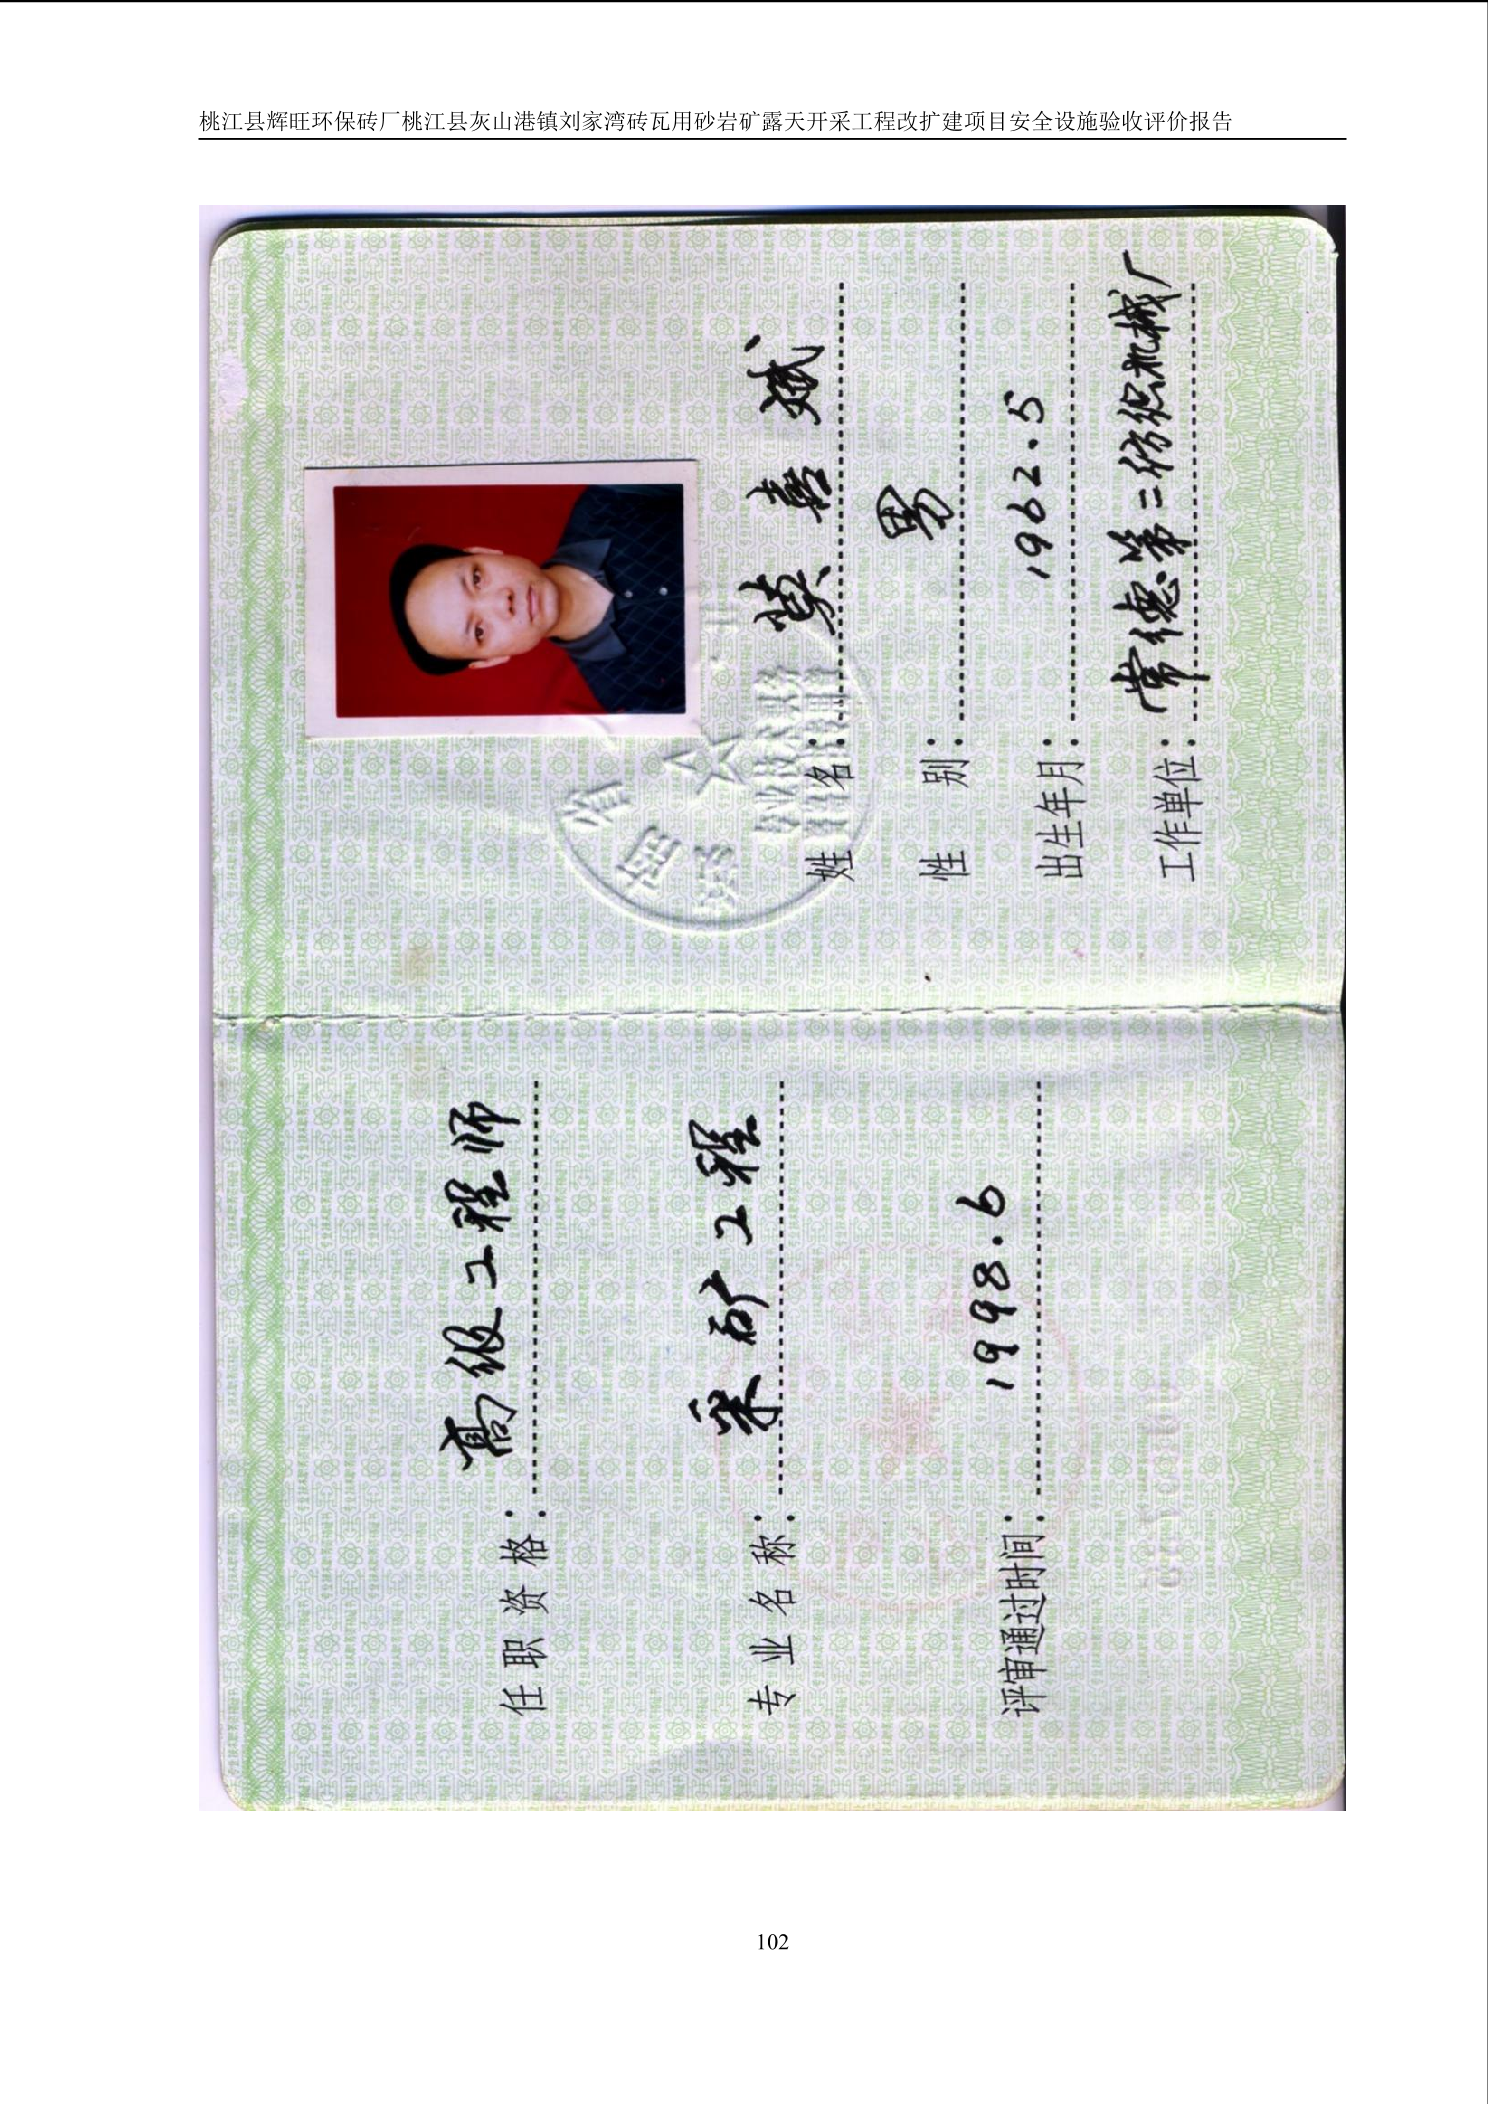 桃江县辉旺环保砖厂桃江县灰山港镇刘家湾砖瓦用砂岩矿露天开采工程改扩建项目安全设施验收评价报告
任职资格：高级工程师
专业名称：采矿工程
评审通过时间：1998.6
姓名：黄寿斌
性别：男
出生年月：1962.5
工作单位：常德第二纺织机械厂
102